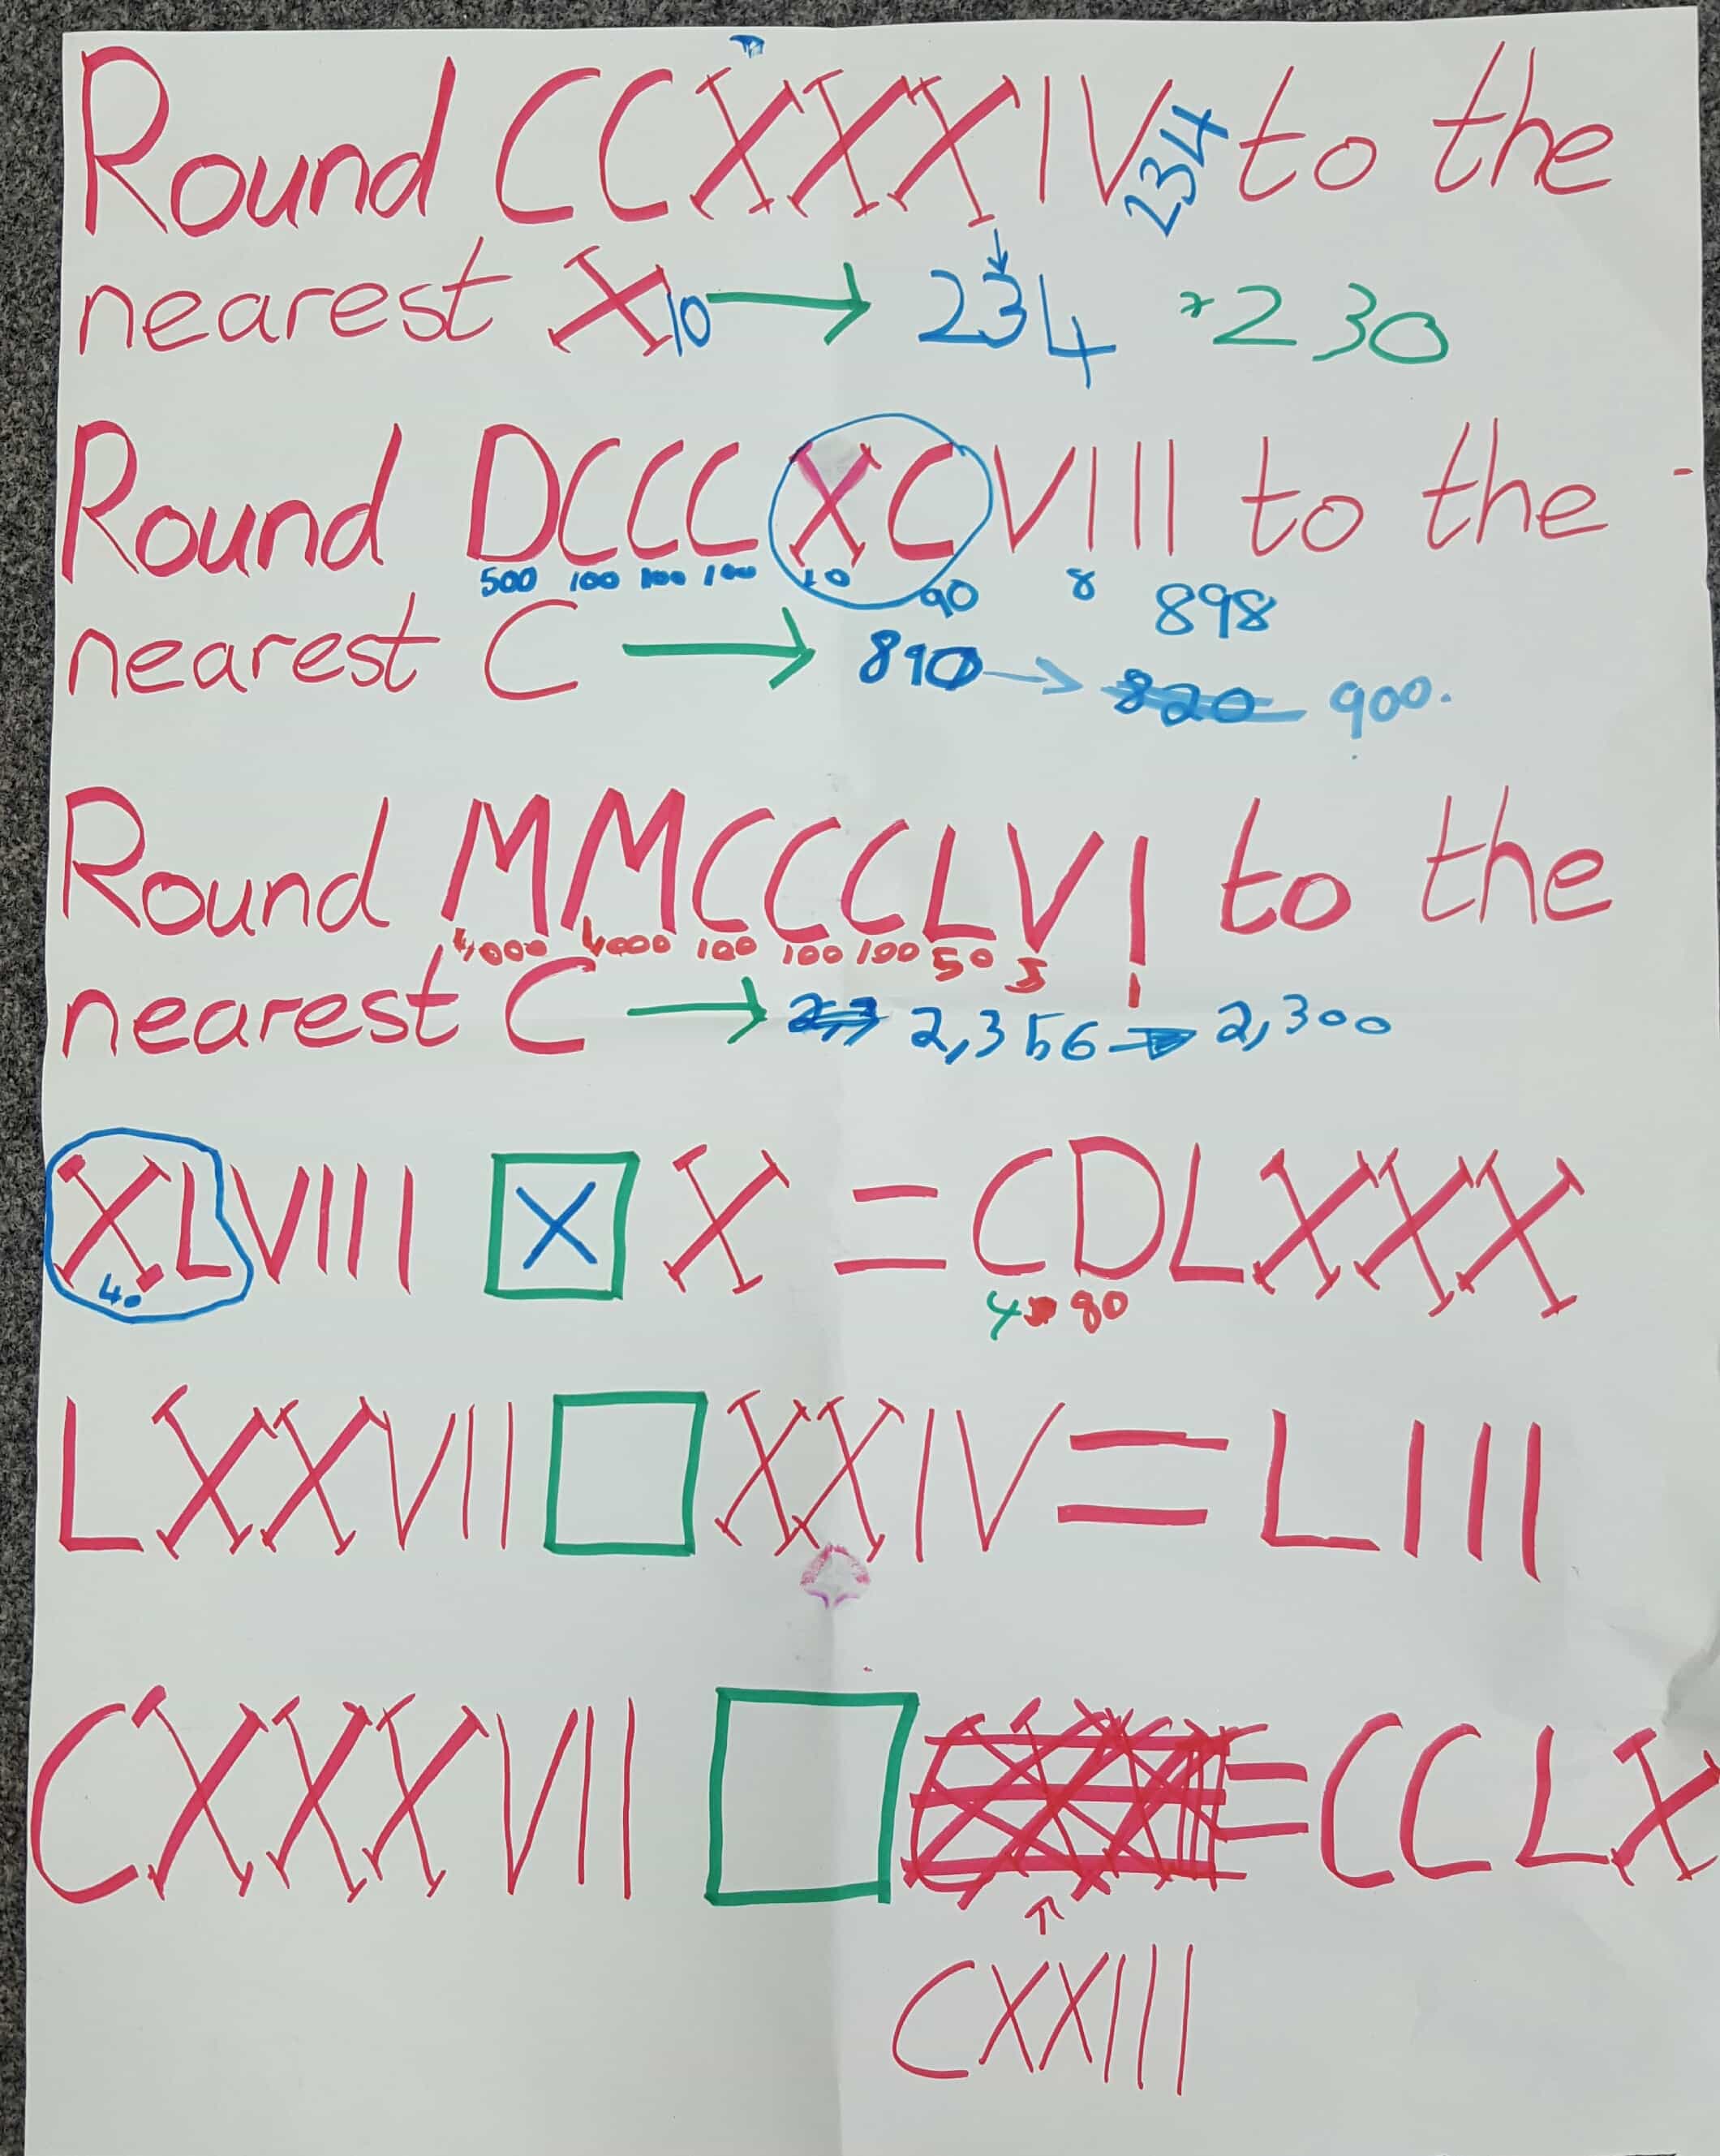 Round CCXXXIV 234 to the
nearest X 10 → 234 230
Round DCCCXCVIII to the
500 100 100 100 10 90 8 898
nearest C → 890 → 820 900.
Round MMCCCLVI to the
1000 1000 100 100 100 50 5 1
nearest C → 2,356 → 2,300
XLVIII X X = CDLXXX
40 4 80
LXXVII XXIV = LIII
CXXXVII = CCLX
CXXIII